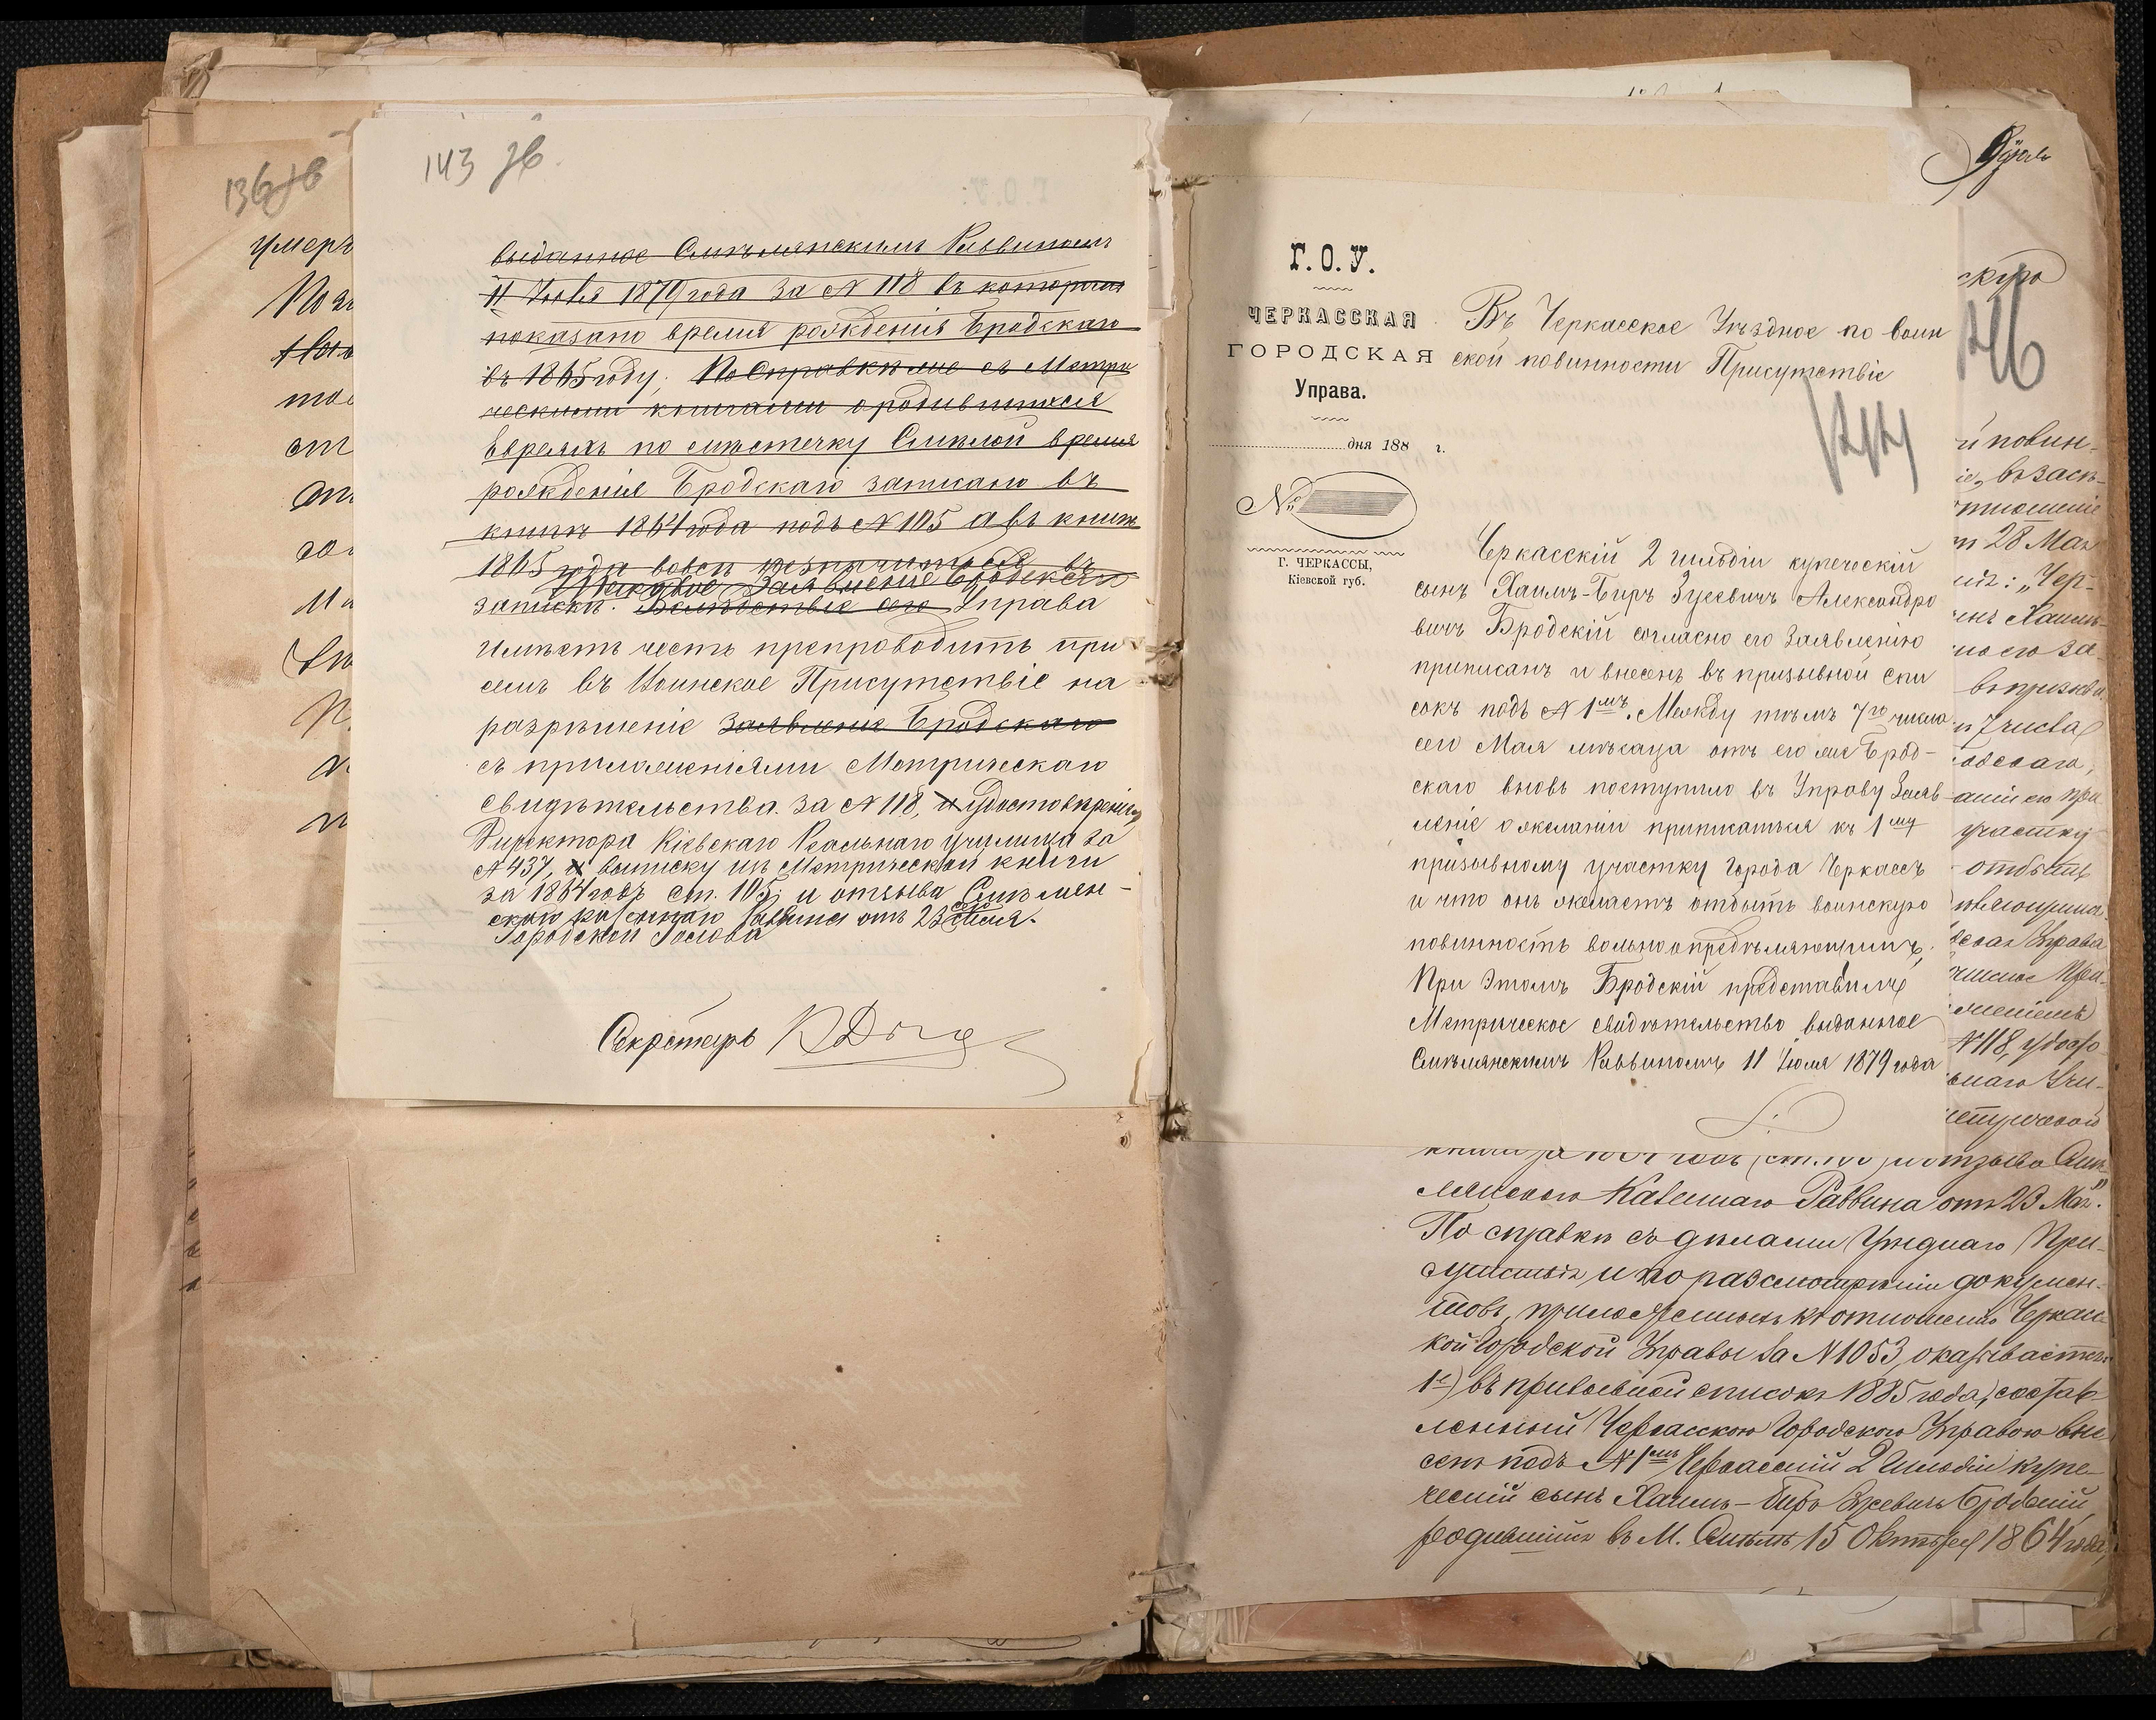 136 об
умеръ
143 об.
выданное Смѣлянскимъ Раввиномъ
11 Іюля 1879 года за № 118 въ которомъ
показано время рожденія Бродскаго
въ 1865 году. По справкѣ же съ Метри
ческими книгами о родившихся
Евреяхъ по мѣстечку Смѣлой время
рожденія Бродскаго записано въ
книгѣ 1864 года подъ № 105 а въ книгѣ
1865 года вовсе не значится въ
Таковое Заявленіе Бродскаго
запискѣ. Вслѣдствіе сего Управа
имѣетъ честь препроводить при
семъ въ Воинское Присутствіе на
разрѣшеніе заявленіе Бродскаго
съ приложеніями Метрическаго
свидѣтельства за № 118, и удостовѣренія
Директора Кіевскаго Реальнаго училища за
№ 437, и выписку изъ Метрической книги
за 1864 годъ ст. 105; и отзыва Смѣлян-
скаго казеннаго Раввина отъ 23 Мая.
Городской Голова
Секретарь
Г. О. У.
ЧЕРКАССКАЯ
ГОРОДСКАЯ
Управа.
дня 188 г.
№
Г. ЧЕРКАССЫ,
Кіевской губ.
Въ Черкасское Уѣздное по воин
ской повинности Присутствіе
144
Черкасскій 2 гильдіи купеческій
сынъ Хаимъ-Беръ Зусевичъ Александро
вичъ Бродскій согласно его Заявленію
приписанъ и внесенъ въ призывной спи
сокъ подъ № 1мъ. Между тѣмъ 7го числа
сего Мая мѣсяца отъ его же Брод-
скаго вновь поступило въ Управу Заяв
леніе о желаніи приписаться къ 1му
призывному участку города Черкассъ
и что онъ желаетъ отбыть воинскую
повинность вольноопредѣляющимъ,
При этомъ Бродскій представилъ
Метрическое свидѣтельство выданное
Смѣлянскимъ Раввиномъ 11 Іюля 1879 года
146
й повин-
28 Мая
"Чер-
7 числа
участку
отбыть
Управа
№ 118, удосто
отзыва Смѣ-
лянскаго Казеннаго Раввина отъ 23 Мая".
По справкѣ съ дѣлами Уѣзднаго При-
сутствія и по разсмотрѣніи докумен-
товъ, приложенныхъ къ отношенію Черкас
кой Городской Управы за № 1053, оказывается:
1е) въ призывной списокъ 1885 года, состав-
ленный Черкасскою Городскою Управою вне
сенъ подъ № 1мъ Черкасскій 2 Гильдіи купе-
ческій сынъ Хаимъ-Беръ Зусевичъ Бродскій,
родившійся въ М. Смѣлѣ 15 Октября 1864 года,